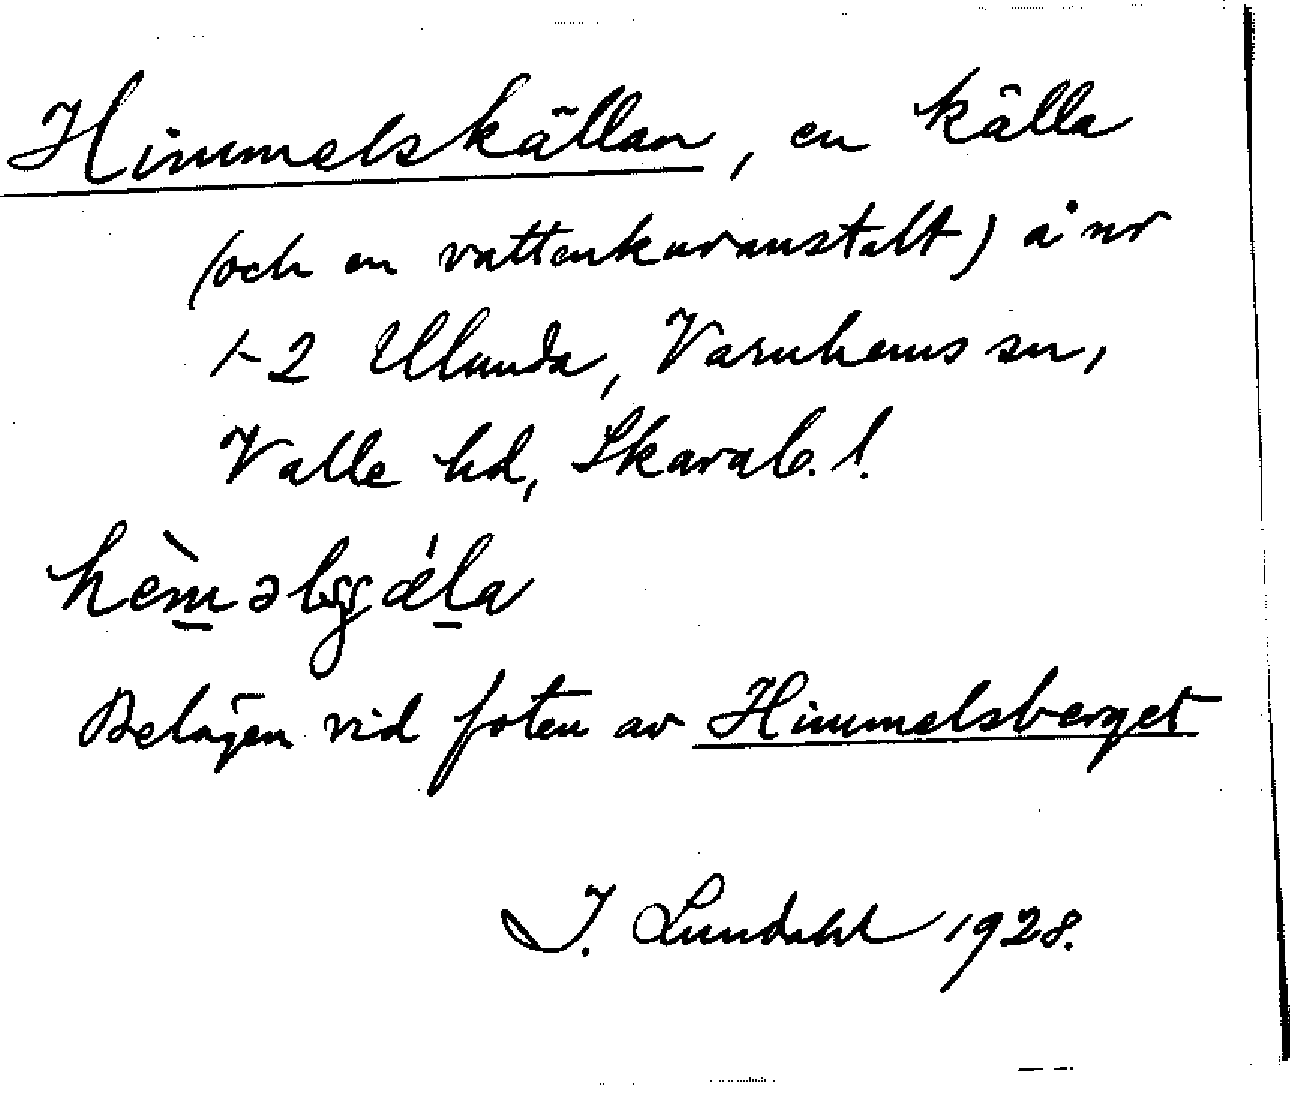 Himmelskällan, en källa
(och en vattenkuranstalt) å nr
1-2 Ulunda, Varnhems sn,
Valle hd, Skarab. l.
Belägen vid foten av Himmelsberget
I. Lundahl 1928.